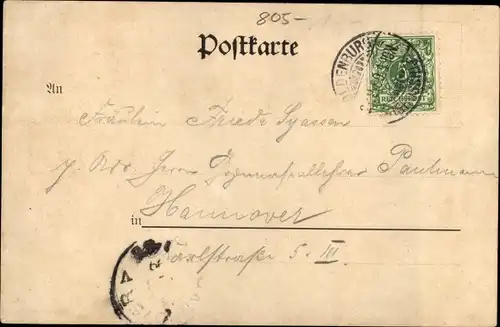 805-
Postkarte
OLDENBURG
5
An
Fräulein Friede Syassen
p. Adr. Herrn Paulmann
Hannover
in
Karlstraße 5 III